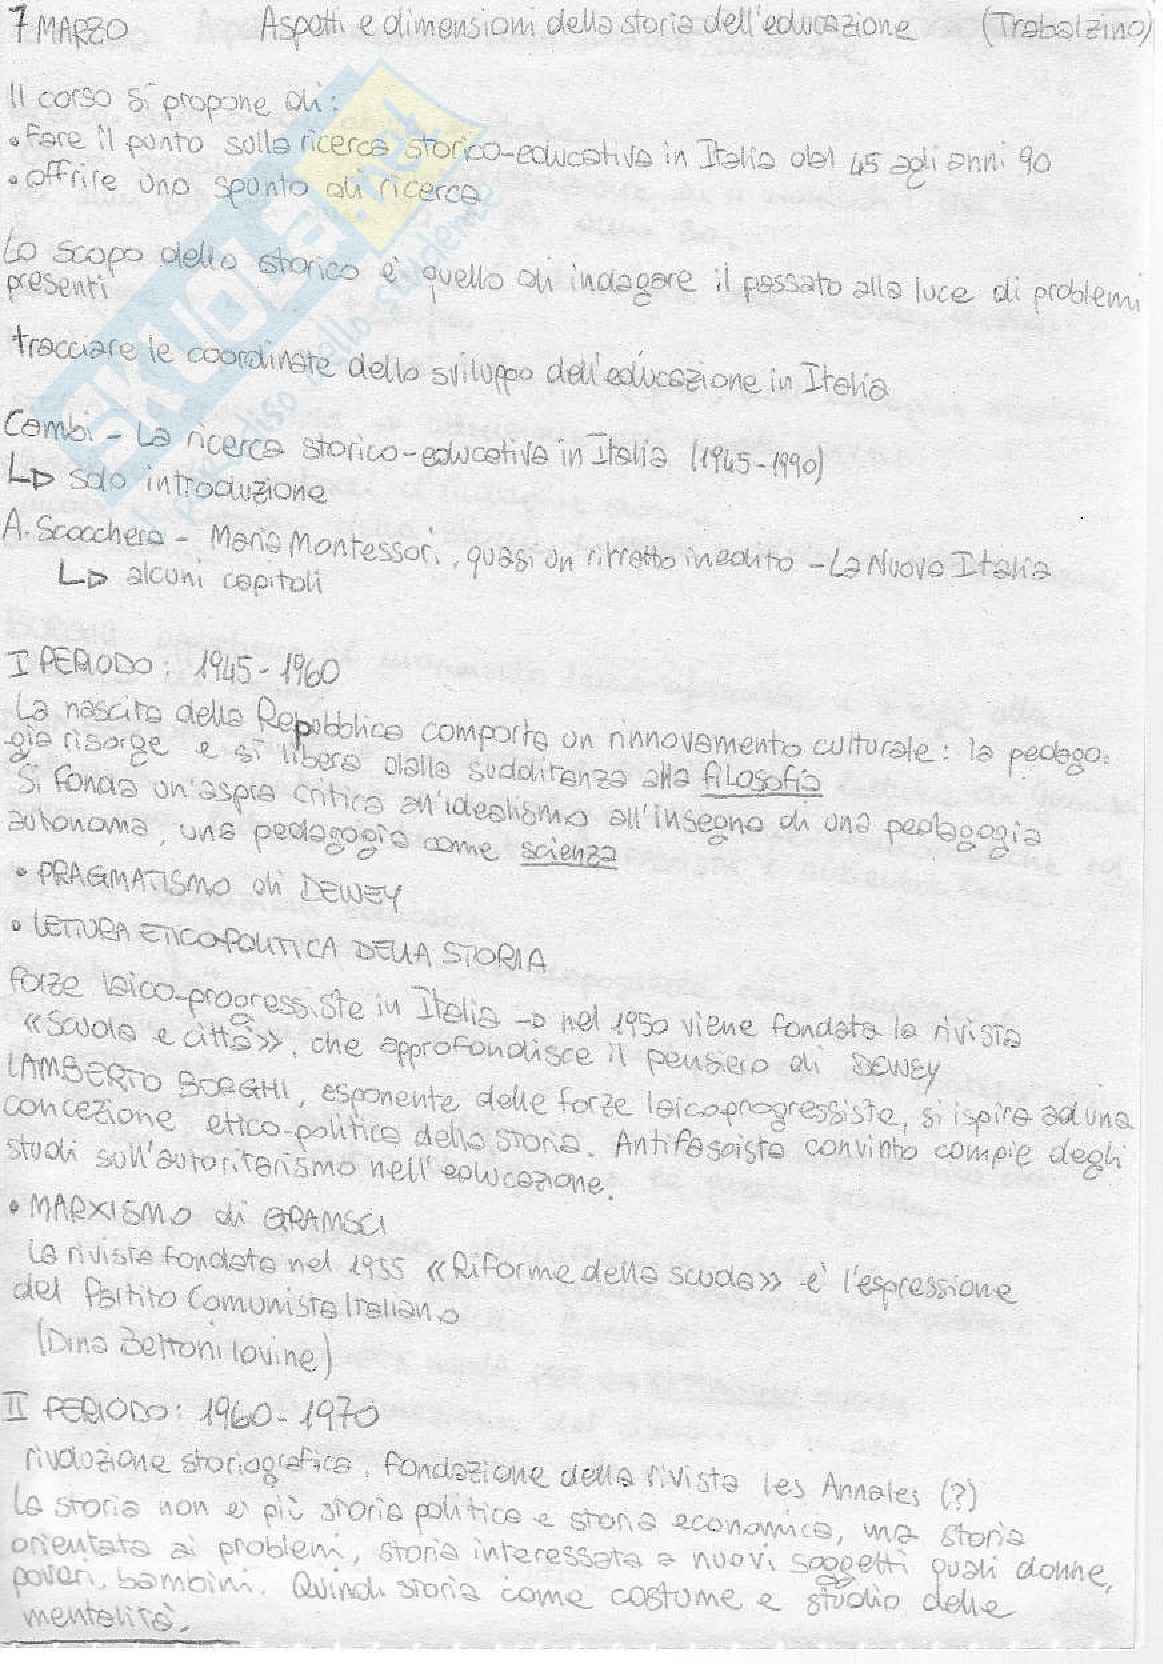 7 MARZO Aspetti e dimensioni della storia dell'educazione (Trabalzino)
Il corso si propone di:
• Fare il punto sulla ricerca storico-educativa in Italia dal 45 agli anni 90
• offrire uno spunto di ricerca
Lo scopo dello storico è quello di indagare il passato alla luce di problemi
presenti
tracciare le coordinate dello sviluppo dell'educazione in Italia
Cambi - La ricerca storico-educativa in Italia (1945-1990)
↳ solo introduzione
A. Scocchera - Maria Montessori, quasi un ritratto inedito - La Nuova Italia
↳ alcuni capitoli
I PERIODO: 1945-1960
La nascita della Repubblica comporta un rinnovamento culturale: la pedago=
gia risorge e si libera dalla sudditanza alla filosofia
Si fonda un'aspra critica all'idealismo all'insegno di una pedagogia
autonoma, una pedagogia come scienza
• PRAGMATISMO di DEWEY
• LETTURA ETICOPOLITICA DELLA STORIA
forze laico-progressiste in Italia → nel 1950 viene fondata la rivista
«Scuola e città», che approfondisce il pensiero di DEWEY
LAMBERTO BORGHI, esponente delle forze laicoprogressiste, si ispira ad una
concezione etico-politica della storia. Antifascista convinto compie degli
studi sull'autoritarismo nell'educazione.
• MARXISMO di GRAMSCI
La rivista fondata nel 1955 «Riforme della scuola» è l'espressione
del Partito Comunista Italiano
(Dina Bertoni Iovine)
II PERIODO: 1960-1970
rivoluzione storiografica, fondazione della rivista Les Annales (?)
La storia non è più storia politica e storia economica, ma storia
orientata ai problemi, storia interessata a nuovi soggetti quali donne,
poveri, bambini. Quindi storia come costume e studio delle
mentalità.
SKUOLA.net
il paradiso dello studente